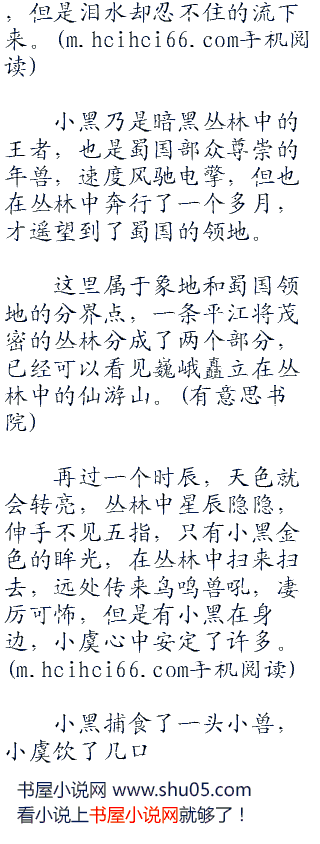 ，但是泪水却忍不住的流下
来。(m.hcihci66.com手机阅
读)
小黑乃是暗黑丛林中的
王者，也是蜀国部众尊崇的
年兽，速度风驰电擎，但也
在丛林中奔行了一个多月，
才遥望到了蜀国的领地。
这里属于象地和蜀国领
地的分界点，一条平江将茂
密的丛林分成了两个部分，
已经可以看见巍峨矗立在丛
林中的仙游山。(有意思书
院)
再过一个时辰，天色就
会转亮，丛林中星辰隐隐，
伸手不见五指，只有小黑金
色的眸光，在丛林中扫来扫
去，远处传来鸟鸣兽吼，凄
厉可怖，但是有小黑在身
边，小虞心中安定了许多。
(m.hcihci66.com手机阅读)
小黑捕食了一头小兽，
小虞饮了几口
书屋小说网 www.shu05.com
看小说上书屋小说网就够了！